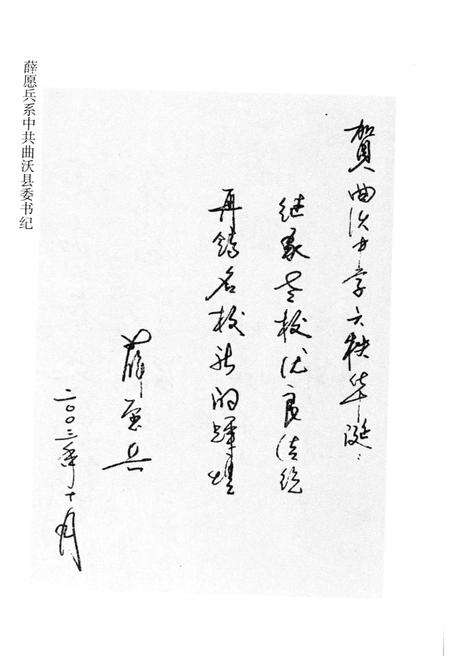 贺曲沃中学六秩华诞：
继承老校优良传统
再铸名校新的辉煌
薛愿兵
二〇〇三年十月
薛愿兵系中共曲沃县委书纪